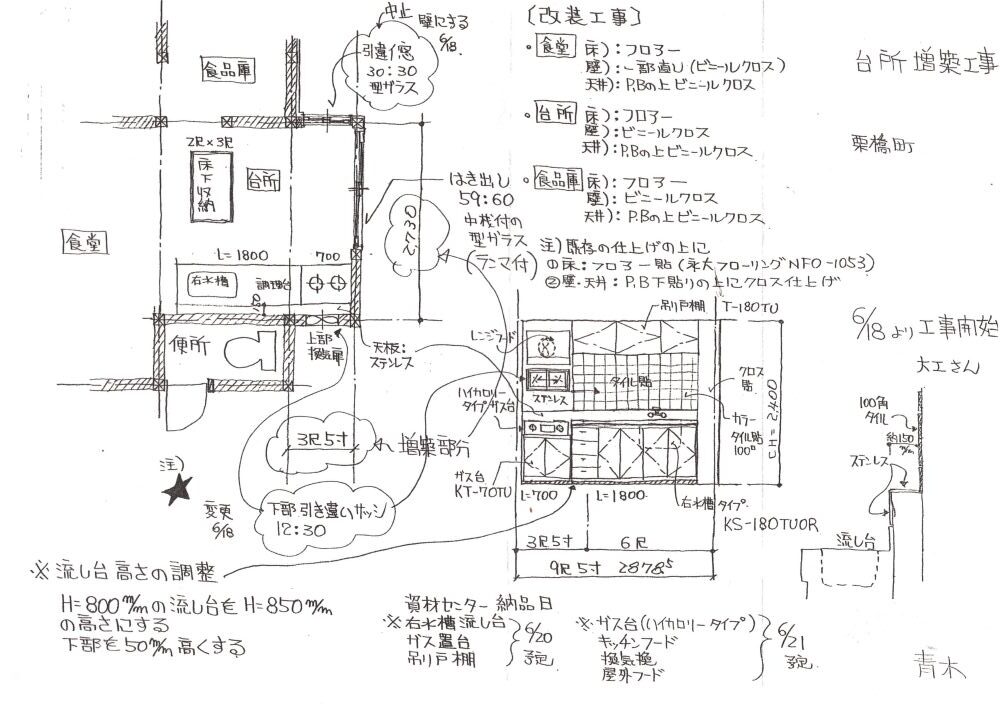 中止
壁にする
6/18.
引違イ窓
30:30
型ガラス
食品庫
2尺×3尺
床下収納
台所
食堂
はき出し
59:60
中桟付の
型ガラス
(ランマ付)
2,730
L=1800
700
右水槽
調理台
便所
上部
換気扇
天板:
ステンレス
3尺5寸
増築部分
注)
変更
6/18
下部引き違いサッシ
12:30
※流し台高さの調整
H=800m/mの流し台をH=850m/m
の高さにする
下部を50m/m高くする
〔改装工事〕
・食堂 床):フロアー
壁):一部直し(ビニールクロス)
天井):P.Bの上ビニールクロス
・台所 床):フロアー
壁):ビニールクロス
天井):P.Bの上ビニールクロス
・食品庫 床):フロアー
壁):ビニールクロス
天井):P.Bの上ビニールクロス
注)既存の仕上げの上に
①床:フロアー貼(永大フローリングNFO-1053)
②壁・天井:P.B下貼りの上にクロス仕上げ
吊り戸棚
T-180TU
レンジフード
ステンレス
タイル貼
クロス
貼
カラー
タイル貼
100□
CH=2,400
ハイカロリー
タイプガス台
ガス台
KT-70TU
L=700
L=1800
右水槽タイプ
KS-180TUOR
3尺5寸
6尺
9尺5寸 2878.5
資材センター納品日
※右水槽流し台
ガス置台
吊り戸棚
6/20
予定
※ガス台(ハイカロリータイプ)
キッチンフード
換気扇
屋外フード
6/21
予定
台所増築工事
栗橋町
6/18より工事開始
大工さん
100角
タイル
約150
m/m
ステンレス
流し台
青木